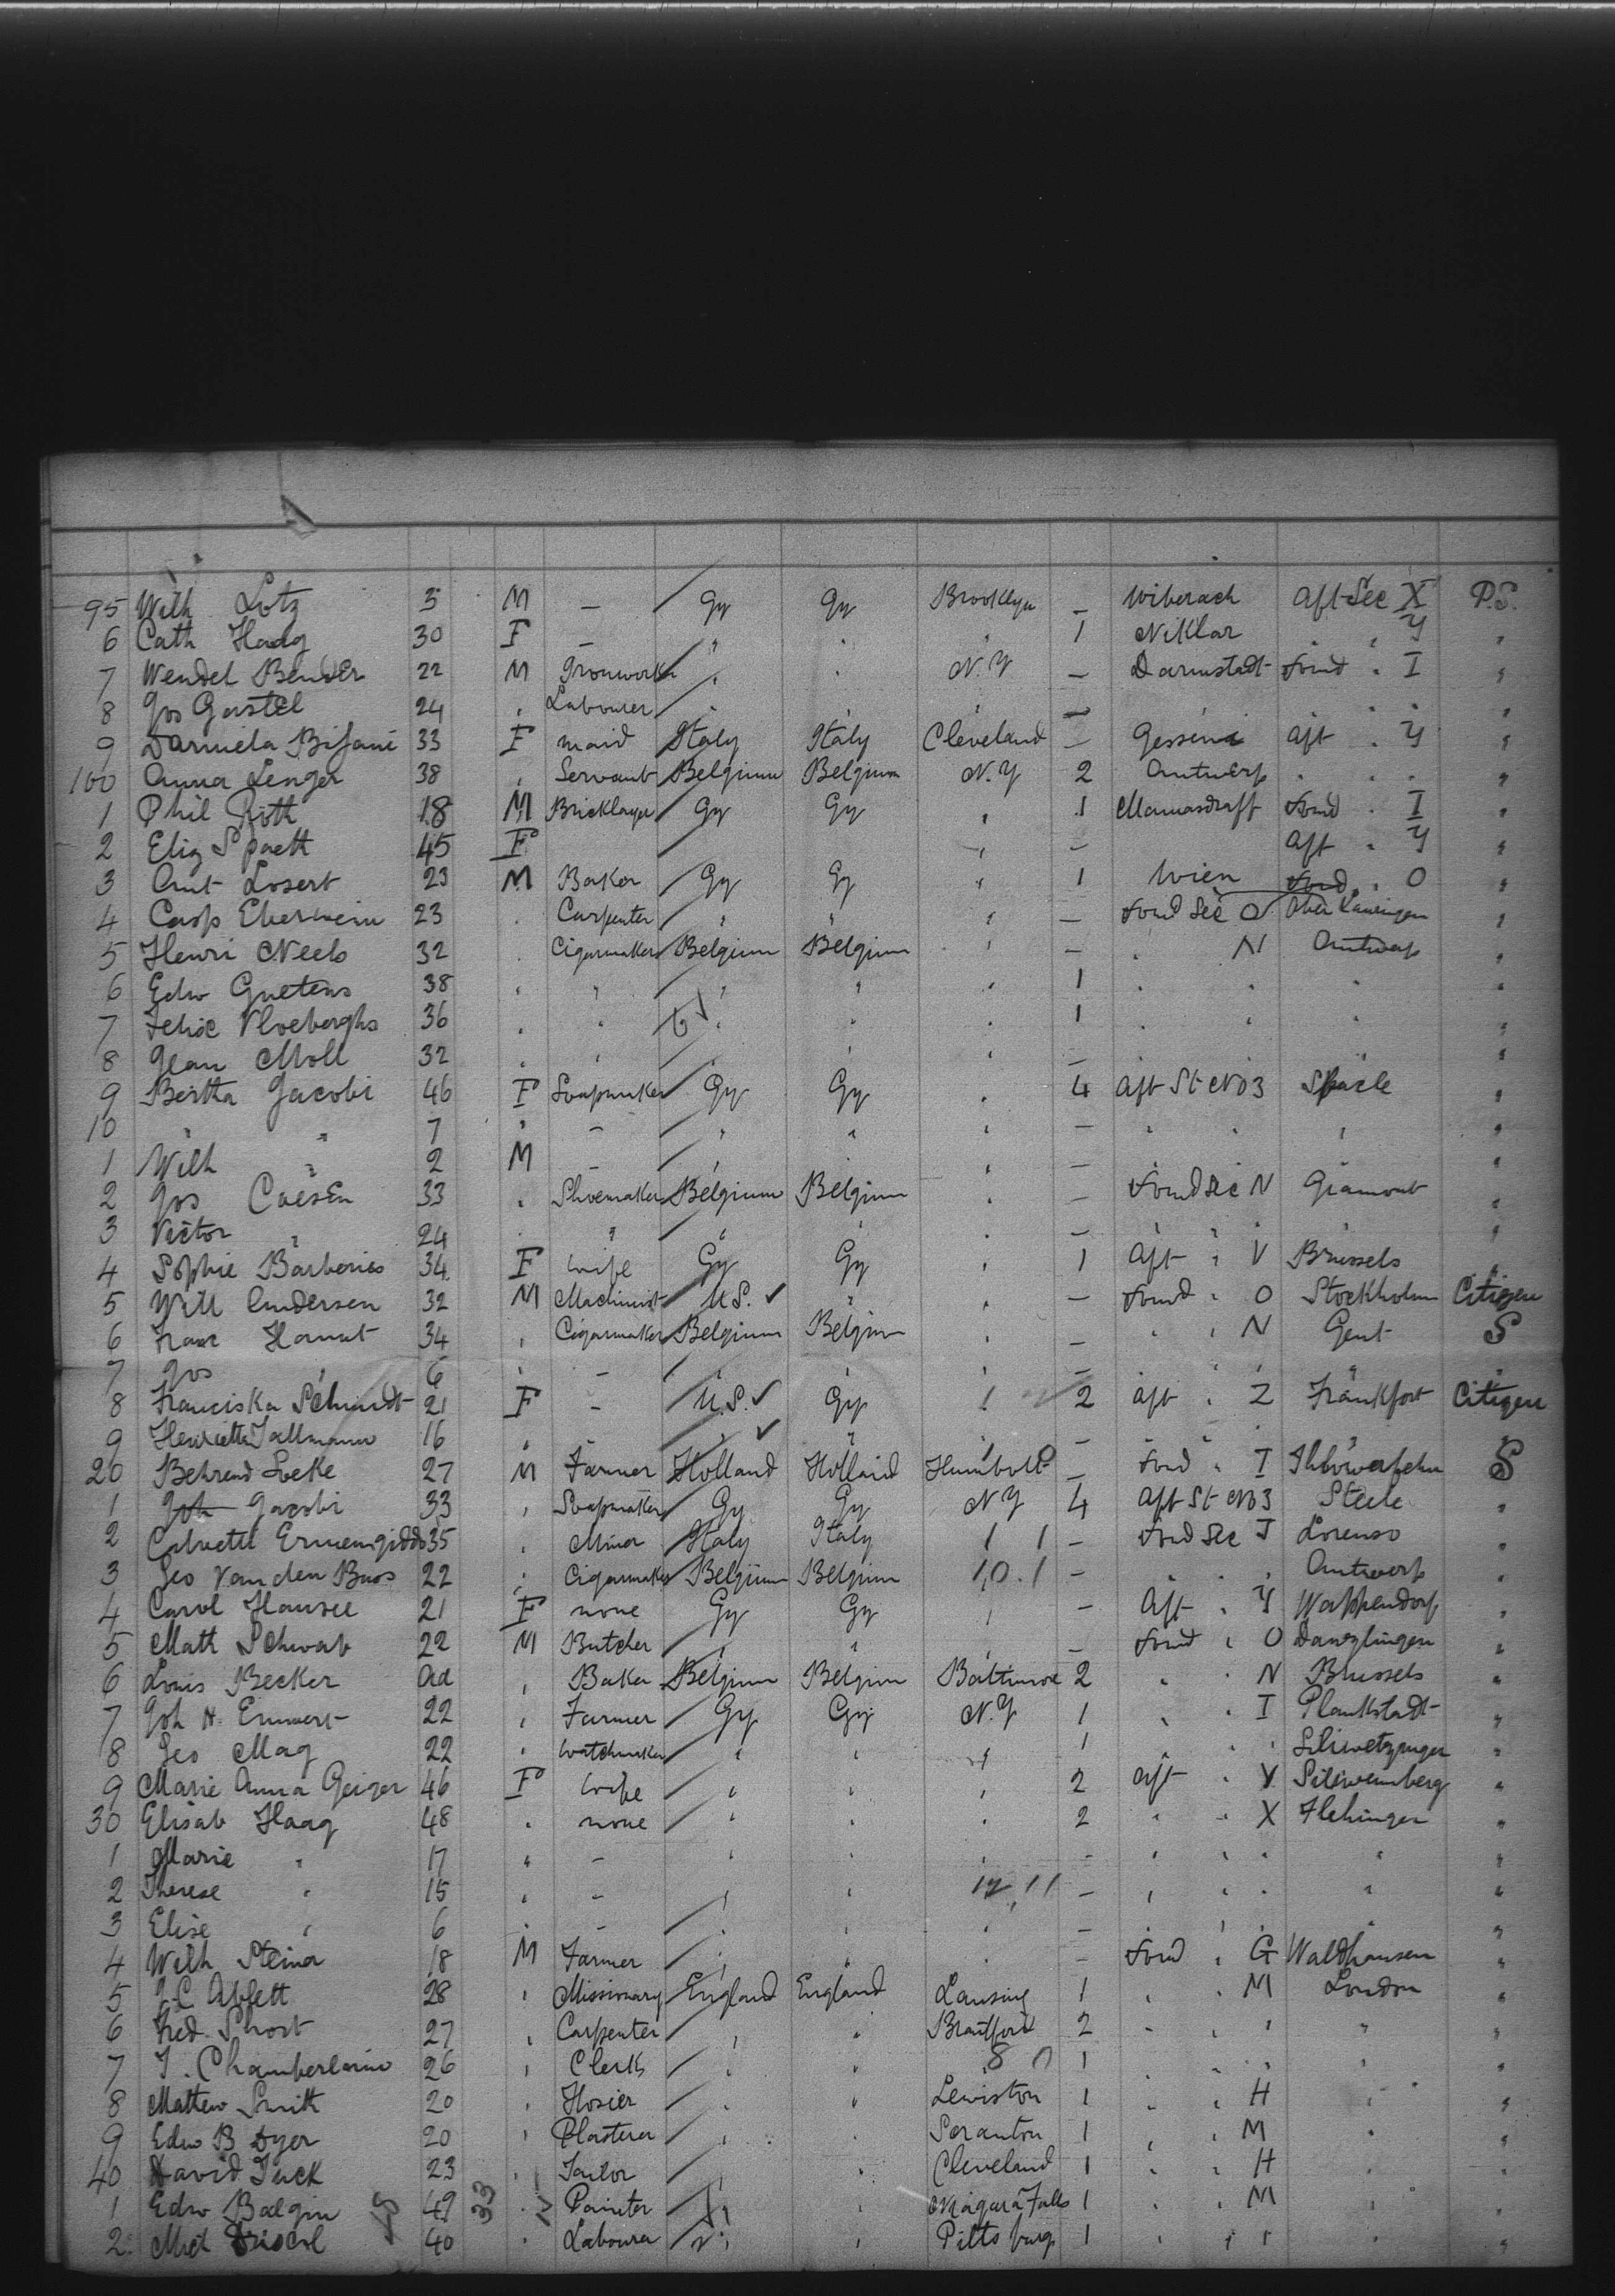 95 Wilh Lotz 5 M — Gy Gy Brooklyn — Wiberach Aft Sec X P.S.
6 Cath Haag 30 F — " " " 1 Niklar " " Y "
7 Wendel Bender 22 M Ironwork " " N.Y — Darmstadt Forwd " I "
8 Jos Gastel 24 " Labourer " " " — " " " " "
9 33 F maid Italy Italy Cleveland — Aft " Y "
100 Anna Lenger 38 " Servant Belgium Belgium N.Y 2 Antwerp " " " "
1 Phil Roth 18 M Bricklayer Gy Gy " 1 Forwd " I "
2 Eliz Spaett 45 F " — Aft " Y "
3 Ant Losert 23 M Baker Gy Gy " 1 Wien Forwd " O "
4 Casp Eberwein 23 " Carpenter " " " — Forwd Sec O Ober "
5 Henri Neels 32 " Cigarmaker Belgium Belgium " — " N Antwerp "
6 Edw Guetens 38 " " " " " 1 " " " "
7 Felix Vloeberghs 36 " " " " " 1 " " " "
8 Jean Moll 32 " " " " " — "
9 Bertha Jacobi 46 F Soapmaker Gy Gy " 4 Aft St No 3 "
10 " " 7 " — " " " — " " " "
1 Wilh " 2 M — " " " — "
2 Jos Coesen 33 " Shoemaker Belgium Belgium " — Forwd Sec N Gramont "
3 Victor " 24 " " " " " — " " " "
4 Sophie Barberies 34 F wife Gy Gy " 1 Aft " V Brussels "
5 Will Andersen 32 M Machinist U.S. ✓ " " — Forwd " O Stockholm Citizen
6 Franc 34 " Cigarmaker Belgium Belgium " — " " N Gent S
7 Jos " 6 " — " " " — " " " " "
8 Franciska Schmidt 21 F — U.S. ✓ Gy " 2 Aft " Z Frankfort Citizen
9 Henrietta Tallmann 16 " — " ✓ " " — " " " " "
20 Behrend Loeke 27 M Farmer Holland Holland Humbolt — Forwd " I S
1 Joh Jacobi 33 " Soapmaker Gy Gy N Y 4 Aft St No 3 Steele "
2 35 " Miner Italy Italy " — Forwd Sec I Lorenso "
3 Geo Van den Buos 22 " Cigarmaker Belgium Belgium " — " " " Antwerp "
4 Carol Hansee 21 F none Gy Gy " — Aft " Y Wappendorf "
5 Math Schwab 22 M Butcher " " " — Forwd " O "
6 Louis Becker ad " Baker Belgium Belgium Baltimore 2 " N Brussels "
7 Joh H. Emmert 22 " Farmer Gy Gy N.Y 1 " " I Plankstadt "
8 Geo Mag 22 " Watchmaker " " " 1 " " "
9 Marie Anna Geiger 46 F wife " " " 2 Aft " Y "
30 Elisab Haag 48 " none " " " 2 " " X Flehingen "
1 Marie " 17 " — " " " — " " " " "
2 Therese " 15 " — " " " — " " " " "
3 Elise " 6 " — " " " — " " " " "
4 Wilh Steiner 18 M Farmer " " " — Forwd " G Waldhausen "
5 28 " Missionary England England Lansing 1 " " M London "
6 Fred Short 27 " Carpenter " " Brantford 2 " " " " "
7 J. Chamberlain 26 " Clerk " " " 1 " " " "
8 Mattew Smith 20 " Hosier " " Lewiston 1 " " H " "
9 Edw B Dyer 20 " Plasterer " " Scranton 1 " " M " "
40 David Tuck 23 " Tailor " " Cleveland 1 " " H " "
1 Edw Balgin 49 33 " Painter " " Niagara Falls 1 " " M " "
2 Mich Driscol 40 " Labourer " " Pittsburg 1 " " " " "